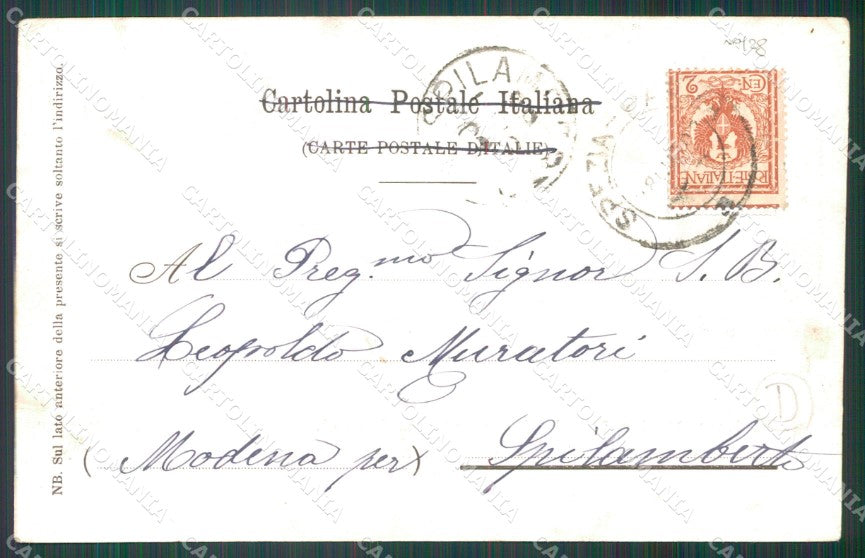 Cartolina Postale Italiana
(CARTE POSTALE D'ITALIE)
Al Preg.mo Signor S. B.
Leopoldo Muratori
(Modena per) Spilamberto
NB. Sul lato anteriore della presente si scrive soltanto l'indirizzo.
POSTE-ITALIANE
CEN. 2
SPEZIA
SPILAMBERTO
D
CARTOLINOMANIA